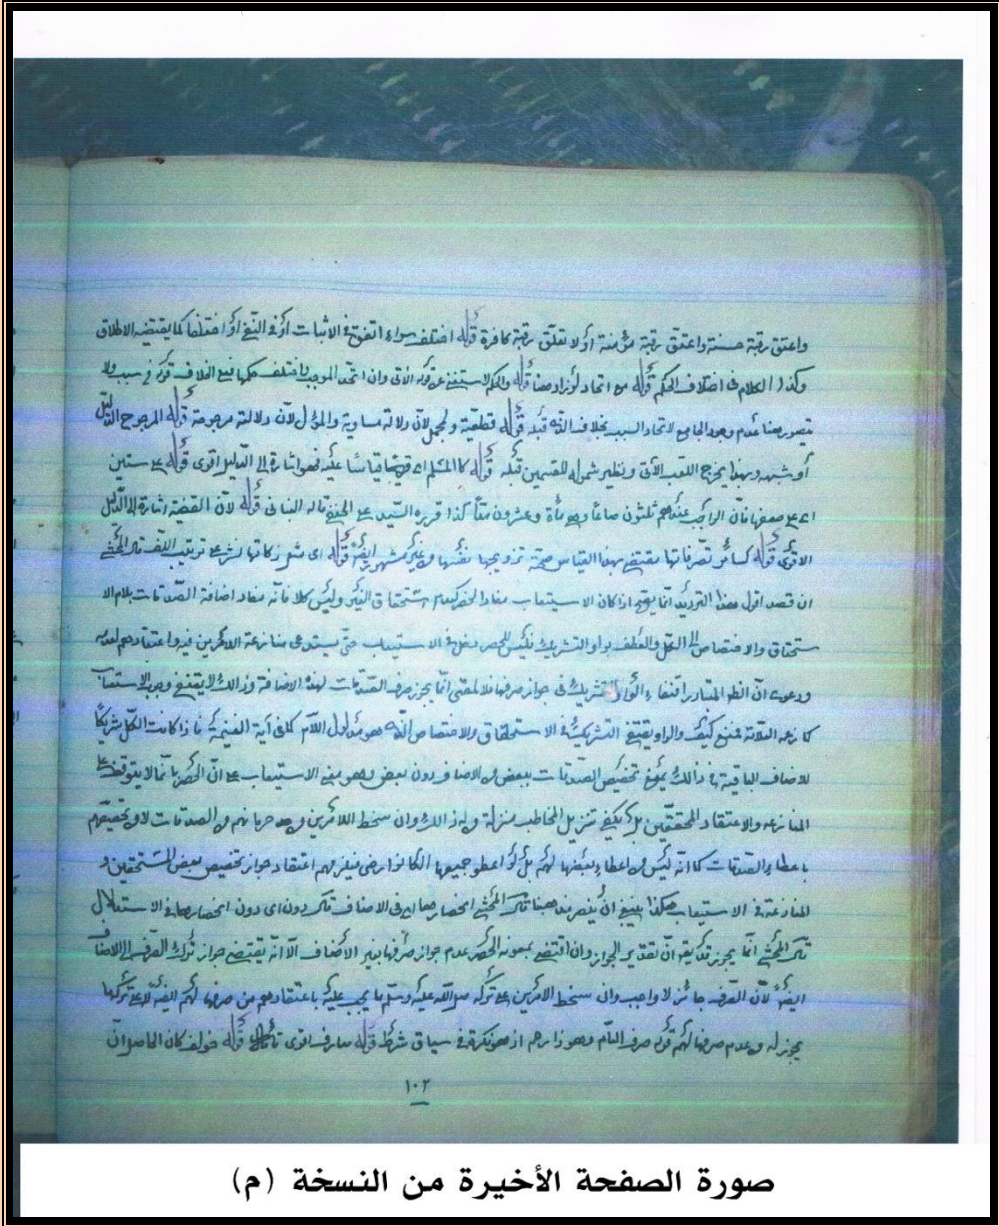 واعتق رقبة حسنة واعتق رقبة مؤمنة أو لا تعتق رقبة كافرة قوله اختلف سواء اتفق في الاثبات أو في النفي أو اختلفا كما يقتضيه الاطلاق
وكذا الكلام في اختلاف الحكم قوله مع اتحاد لو زاد هنا قوله والحكم لاستغنى عن قوله الآتي وان اتحد الموجب واختلف حكمهما ففيه الخلاف قوله في سبب ولا
يتصور هنا عدم وجود الجامع لاتحاد السبب بخلاف قوله قطعية والمجمل لأن دلالته مساوية والمؤل لأن دلالته مرجوحة قوله المرجوح الدليل
أو شبهه وبهذا يخرج اللعب الآتي ونظير شموله للقسمين قبله قوله قياسا عليه فهو اشارة إلى الدليل اقوى قوله على ستين
فان الواجب عندهم ثلثون صاعا وهو مأة وعشرون مدّا كذا قرره السيد على الحنفي قاله البناني قوله لأن القضية اشارة إلى الدليل
الاقوى قوله كسائر تصرفاتها مقتضى بهذا القياس صحة تزويجها نفسها وغير ايضًا قوله اى على ترتيب اللف قال المحشي
ان قصد اقول هذا الترديد انما يصح اذا كان الاستيعاب مفاد الحصر كعدم استحقاق الغير وليس كلا فانه مفاد اضافة الصدقات بلام الا
ستحقاق والاختصاص إلى الكل والعطف بواو التشريك فليس للحصر دخل في الاستيعاب حتى يستدعى منازعة اللامزين فيه واعتقادهم لعدمه
ودعوى أن التشريك في جواز صرفها فالمعنى انما يجوز صرف الصدقات لهذه الاضافة وذالك لا يقتضى وجوب الاستيعاب
كما زعمه العلامة تمنع كيف والواو يقتضى التشريك في الاستحقاق والاختصاص الذى هو مدلول اللام كما في آية الغنيمة فاذا كانت الكل شريكا
للاصناف الباقية في ذالك يمتنع تخصيص الصدقات ببعض من الاصناف دون بعض وهو معنى الاستيعاب على أن الحصر بانما لا يتوقف على
المنازعة والاعتقاد المحققين بل يكفي تنزيل المخاطب منزلة من له ذالك وان سخط اللامزين حرمانهم من الصدقات لا من تخصيصهم
باعطاء الصدقات كما انه ليس من اعطاء بعضها لهم بل لو اعطوا جميعها لكانوا رضى فيلزمهم اعتقاد جواز تخصيص بعض المستحقين و
المنازعة في الاستيعاب هكذا ينبغي أن يفهم هنا قال المحشي انحصارها في الاصناف قال دون اى دون انحصارها في الاستدلال
قال المحشي انما يجوز قد يقال أن تقدير الجواز وان اقتضى بمعونة الحصر عدم جواز صرفها بغير الأصناف الا انه يقتضى جواز ترك الصرف إلى الاصناف
ايضًا لأن الصرف جائز لا واجب وان سخط اللامزين على تركه صلى الله عليه وسلم ما يجب عليه باعتقادهم من صرفها لهم ايضًا لا على تركه ما
يجوز له من عدم صرفها لهم قوله صرف اللام وهو ذا رحم اذ هو نكرة في سياق شرط قوله صارف اقوى قوله خولف كان الحاصل ان
١٠٢
صورة الصفحة الأخيرة من النسخة (م)